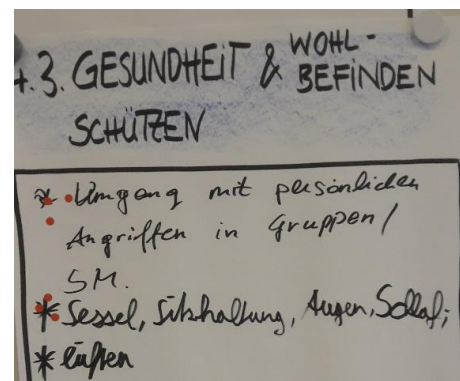 4.3. GESUNDHEIT & WOHL-
BEFINDEN
SCHÜTZEN
* Umgang mit persönlichen
Angriffen in Gruppen/
SM.
* Sessel, Sitzhaltung, Augen, Schlaf;
* lüften